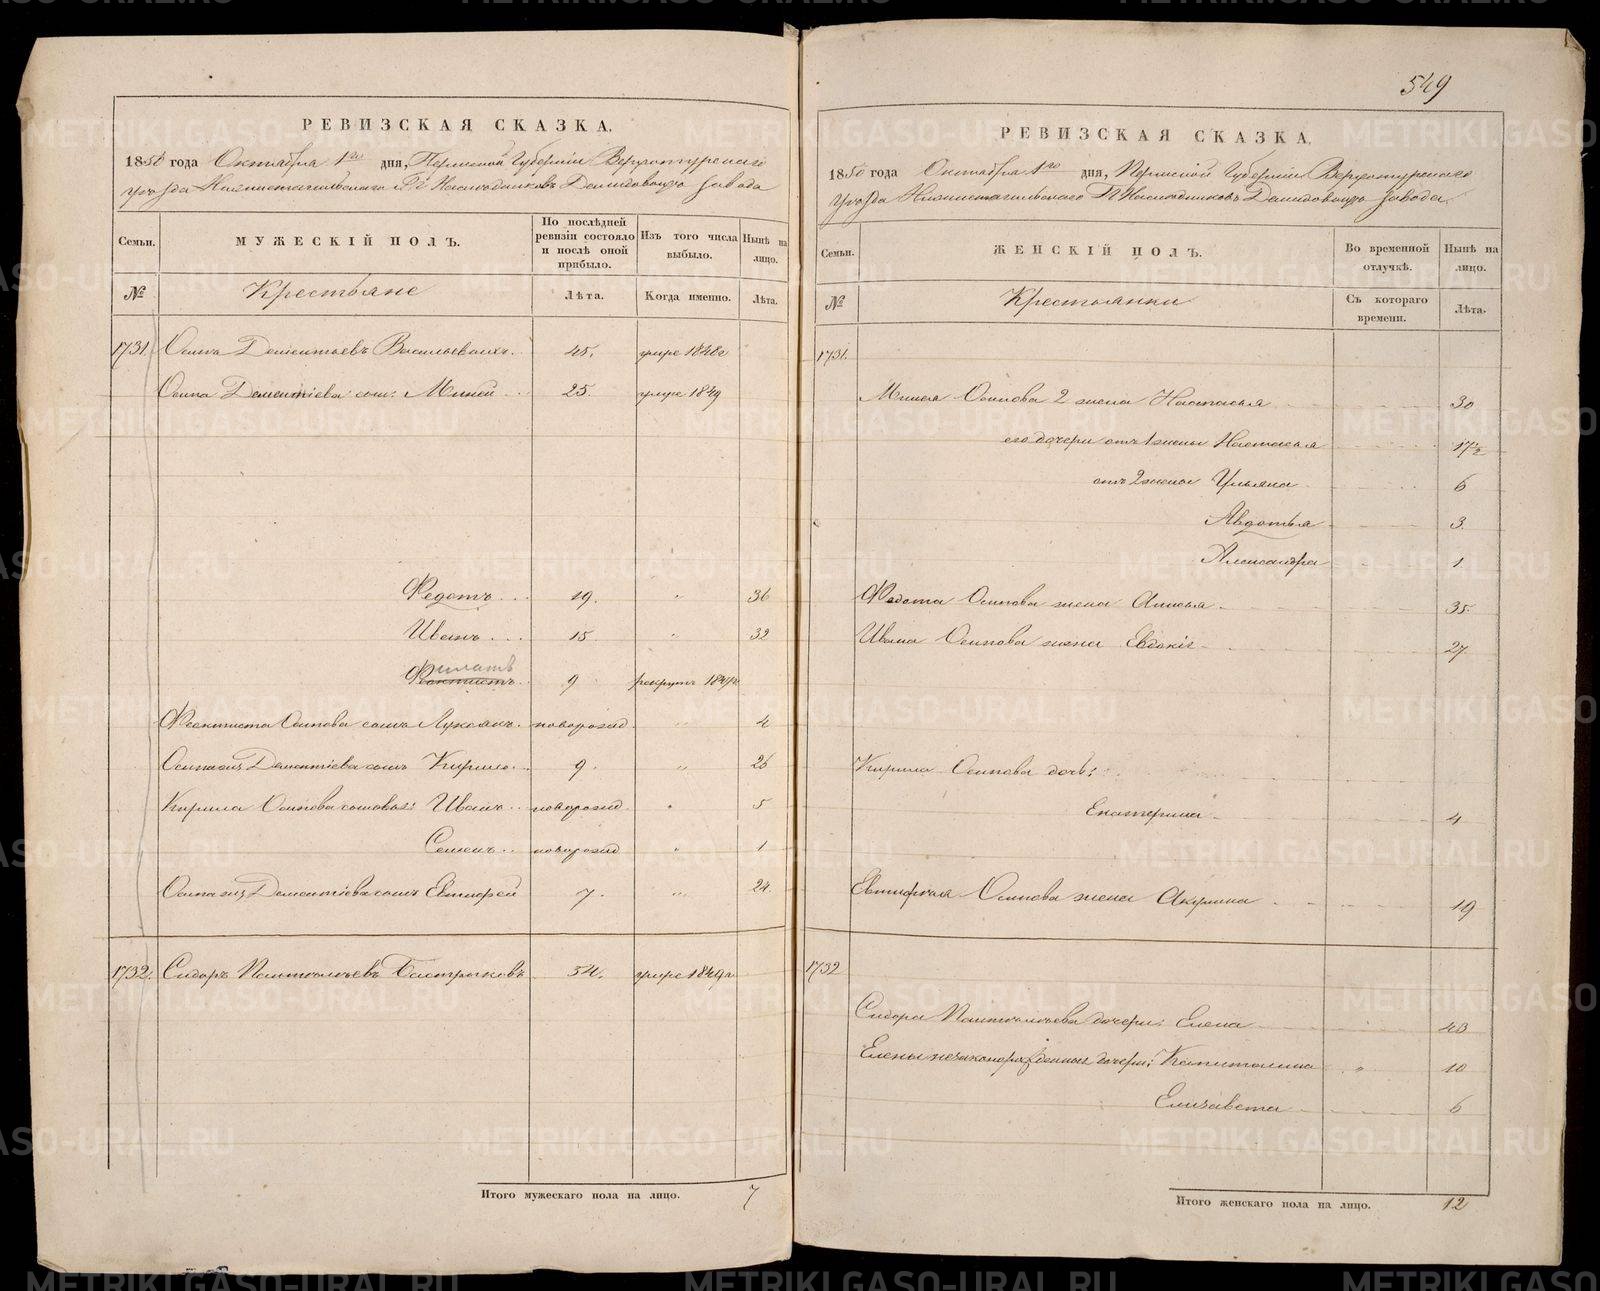 549
РЕВИЗСКАЯ СКАЗКА.
1850 года Октября 1го дня, Пермской Губернии Верхотурского
уезда Нижнетагильского Гг Наследниковъ Демидовыхъ завода
Семьи. МУЖЕСКІЙ ПОЛЪ. По послѣдней ревизіи состояло и послѣ оной прибыло. Изъ того числа выбыло. Нынѣ на лицо.
№ Крестьяне Лѣта. Когда именно. Лѣта.
1731. Осипъ Дементьевъ 45. умре 1848г
Осипа Дементіева сын: Миней 25. умре 1849
Федотъ 19. " 36
Иванъ 15 " 32
Филатъ
Феоктистъ 9 рекрутъ
Феоктиста Осипова сынъ Лукоянъ новорожд " 4
Осипа Дементіева сынъ Кирило 9. " 26
Кирила Осипова сыновья: Иванъ новорожд " 5
Семенъ новорожд " 1
Осипа Дементіева сынъ Евтифей 7. " 24.
1732. Сидоръ Пантелѣевъ Бастрыковъ 54. умре 1849г
Итого мужескаго пола на лицо. 7
РЕВИЗСКАЯ СКАЗКА.
1850 года Октября 1го дня, Пермской Губерніи Верхотурского
уезда Нижнетагильского Гг Наследниковъ Демидовыхъ завода.
Семьи. ЖЕНСКІЙ ПОЛЪ. Во временной отлучкѣ. Нынѣ на лицо.
№ Крестьянки Съ котораго времени. Лѣта.
1731.
Минея Осипова 2 жена Настасья 30
его дочери отъ 1 жены Настасья 17½
отъ 2 жены Ульяна 6
Авдотья 3.
Александра 1
Федота Осипова жена Анисья 35.
Ивана Осипова жена Евдокія 27
Кирила Осипова дочь:
Екатерина 4
Евтифея Осипова жена Акулина 19
1732
Сидора Пантелѣева дочери: Елена 43
Елены незаконорожденныя дочери: Капиталина " 10
Елизавета 6
Итого женскаго пола на лицо. 12
METRIKI.GASO-URAL.RU